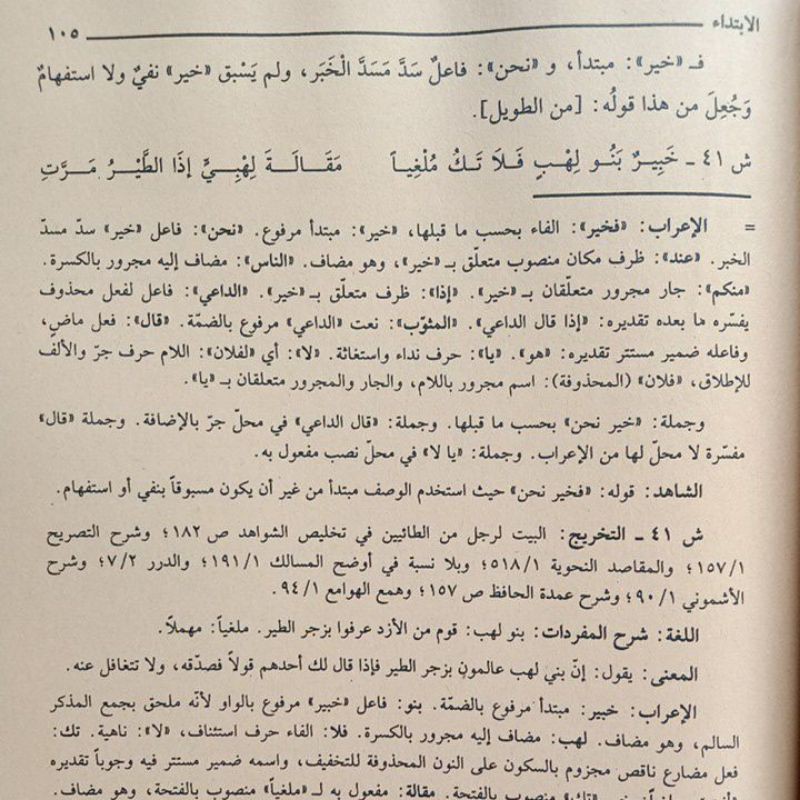 الابتداء ١٠٥
فـ «خير»: مبتدأ، و «نحن»: فاعلٌ سَدَّ مَسَدَّ الْخَبَر، ولم يَسْبق «خير» نفيٌ ولا استفهامٌ
وَجُعِلَ من هذا قولُه: [من الطويل].
ش ٤١ ـ خَبِيرٌ بَنُو لِهْبٍ فَلَا تَكُ مُلْغِياً مَقَالَةَ لِهْبِيٍّ إِذَا الطَّيْرُ مَرَّتِ
= الإعراب: «فخير»: الفاء بحسب ما قبلها، «خير»: مبتدأ مرفوع. «نحن»: فاعل «خير» سدّ مسدّ
الخبر. «عند»: ظرف مكان منصوب متعلّق بـ «خير»، وهو مضاف. «الناس»: مضاف إليه مجرور بالكسرة.
«منكم»: جار مجرور متعلّقان بـ «خير». «إذا»: ظرف متعلّق بـ «خير». «الداعي»: فاعل لفعل محذوف
يفسّره ما بعده تقديره: «إذا قال الداعي». «المثوّب»: نعت «الداعي» مرفوع بالضمّة. «قال»: فعل ماضٍ،
وفاعله ضمير مستتر تقديره: «هو». «يا»: حرف نداء واستغاثة. «لا»: أي «لفلان»: اللام حرف جرّ والألف
للإطلاق، «فلان» (المحذوفة): اسم مجرور باللام، والجار والمجرور متعلقان بـ «يا».
وجملة: «خير نحن» بحسب ما قبلها. وجملة: «قال الداعي» في محلّ جرّ بالإضافة. وجملة «قال»
مفسّرة لا محلّ لها من الإعراب. وجملة: «يا لا» في محلّ نصب مفعول به.
الشاهد: قوله: «فخير نحن» حيث استخدم الوصف مبتدأ من غير أن يكون مسبوقاً بنفي أو استفهام.
ش ٤١ ـ التخريج: البيت لرجل من الطائيين في تخليص الشواهد ص ١٨٢؛ وشرح التصريح
١٥٧/١؛ والمقاصد النحوية ٥١٨/١؛ وبلا نسبة في أوضح المسالك ١٩١/١؛ والدرر ٧/٢؛ وشرح
الأشموني ٩٠/١؛ وشرح عمدة الحافظ ص ١٥٧؛ وهمع الهوامع ٩٤/١.
اللغة: شرح المفردات: بنو لهب: قوم من الأزد عرفوا بزجر الطير. ملغياً: مهملاً.
المعنى: يقول: إنّ بني لهب عالمون بزجر الطير فإذا قال لك أحدهم قولاً فصدّقه، ولا تتغافل عنه.
الإعراب: خبير: مبتدأ مرفوع بالضمّة. بنو: فاعل «خبير» مرفوع بالواو لأنّه ملحق بجمع المذكر
السالم، وهو مضاف. لهب: مضاف إليه مجرور بالكسرة. فلا: الفاء حرف استئناف، «لا»: ناهية. تك:
فعل مضارع ناقص مجزوم بالسكون على النون المحذوفة للتخفيف، واسمه ضمير مستتر فيه وجوباً تقديره
«تك» منصوب بالفتحة. مقالة: مفعول به لـ «ملغياً» منصوب بالفتحة، وهو مضاف.